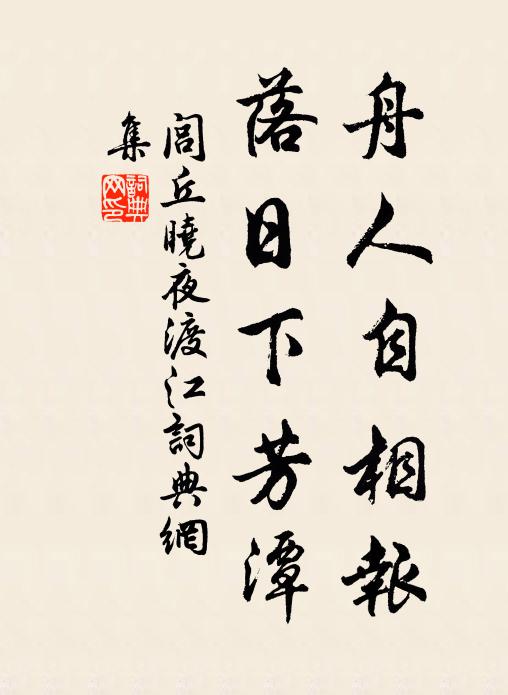 舟人自相報
落日下芳潭
閭丘曉夜渡江詞典網
集
詞典網印